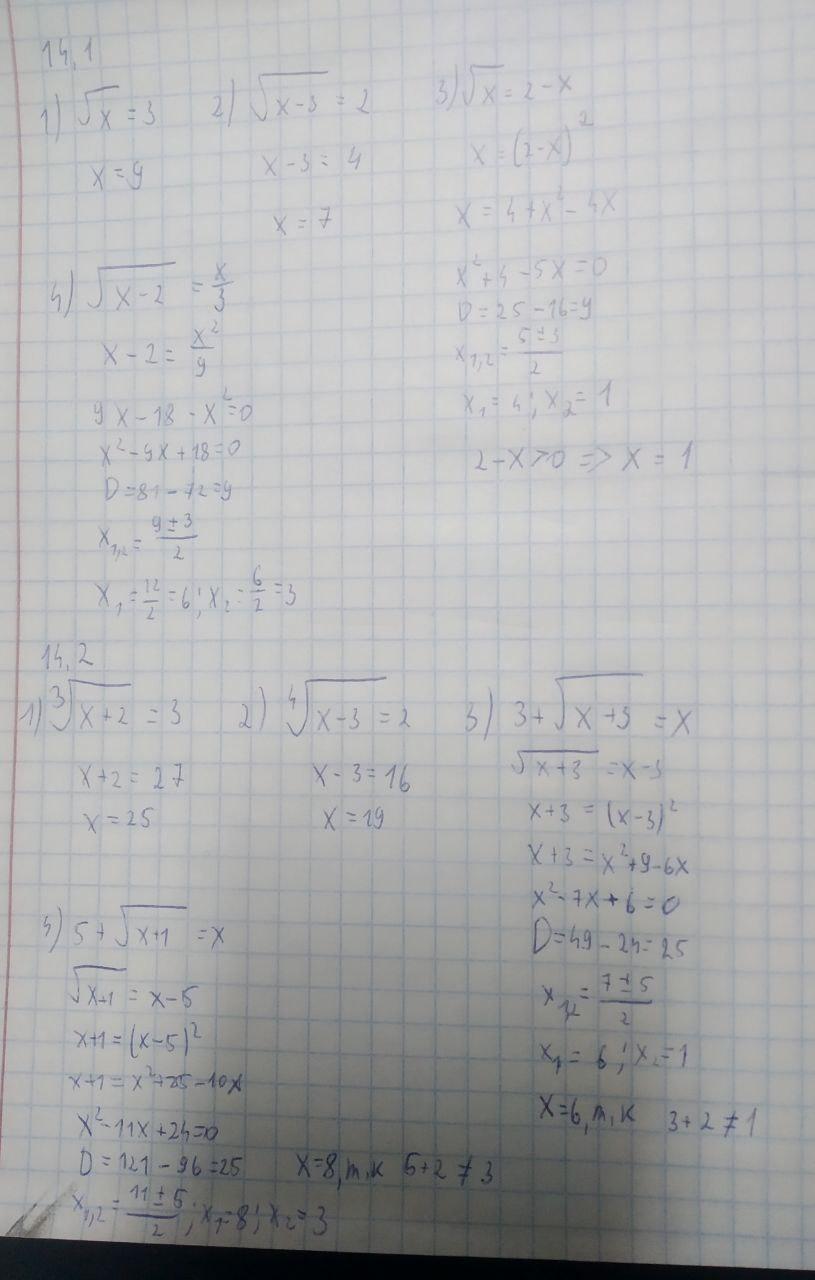 14,1
1) √x = 3
x = 9
2) √(x-3) = 2
x - 3 = 4
x = 7
3) √x = 2 - x
x = (2-x)²
x = 4 + x² - 4x
x² + 4 - 5x = 0
D = 25 - 16 = 9
x₁,₂ = (5 ± 3)/2
x₁ = 4; x₂ = 1
2 - x > 0 => x = 1
4) √(x-2) = x/3
x - 2 = x²/9
9x - 18 - x² = 0
x² - 9x + 18 = 0
D = 81 - 72 = 9
x₁,₂ = (9 ± 3)/2
x₁ = 12/2 = 6; x₂ = 6/2 = 3
14,2
1) ³√(x+2) = 3
x + 2 = 27
x = 25
2) ⁴√(x-3) = 2
x - 3 = 16
x = 19
3) 3 + √(x+3) = x
√(x+3) = x - 3
x + 3 = (x-3)²
x + 3 = x² + 9 - 6x
x² - 7x + 6 = 0
D = 49 - 24 = 25
x₁,₂ = (7 ± 5)/2
x₁ = 6; x₂ = 1
x = 6, т.к 3 + 2 ≠ 1
4) 5 + √(x+1) = x
√(x+1) = x - 5
x + 1 = (x-5)²
x + 1 = x² + 25 - 10x
x² - 11x + 24 = 0
D = 121 - 96 = 25
x₁,₂ = (11 ± 5)/2; x₁ = 8; x₂ = 3
x = 8, т.к 5 + 2 ≠ 3